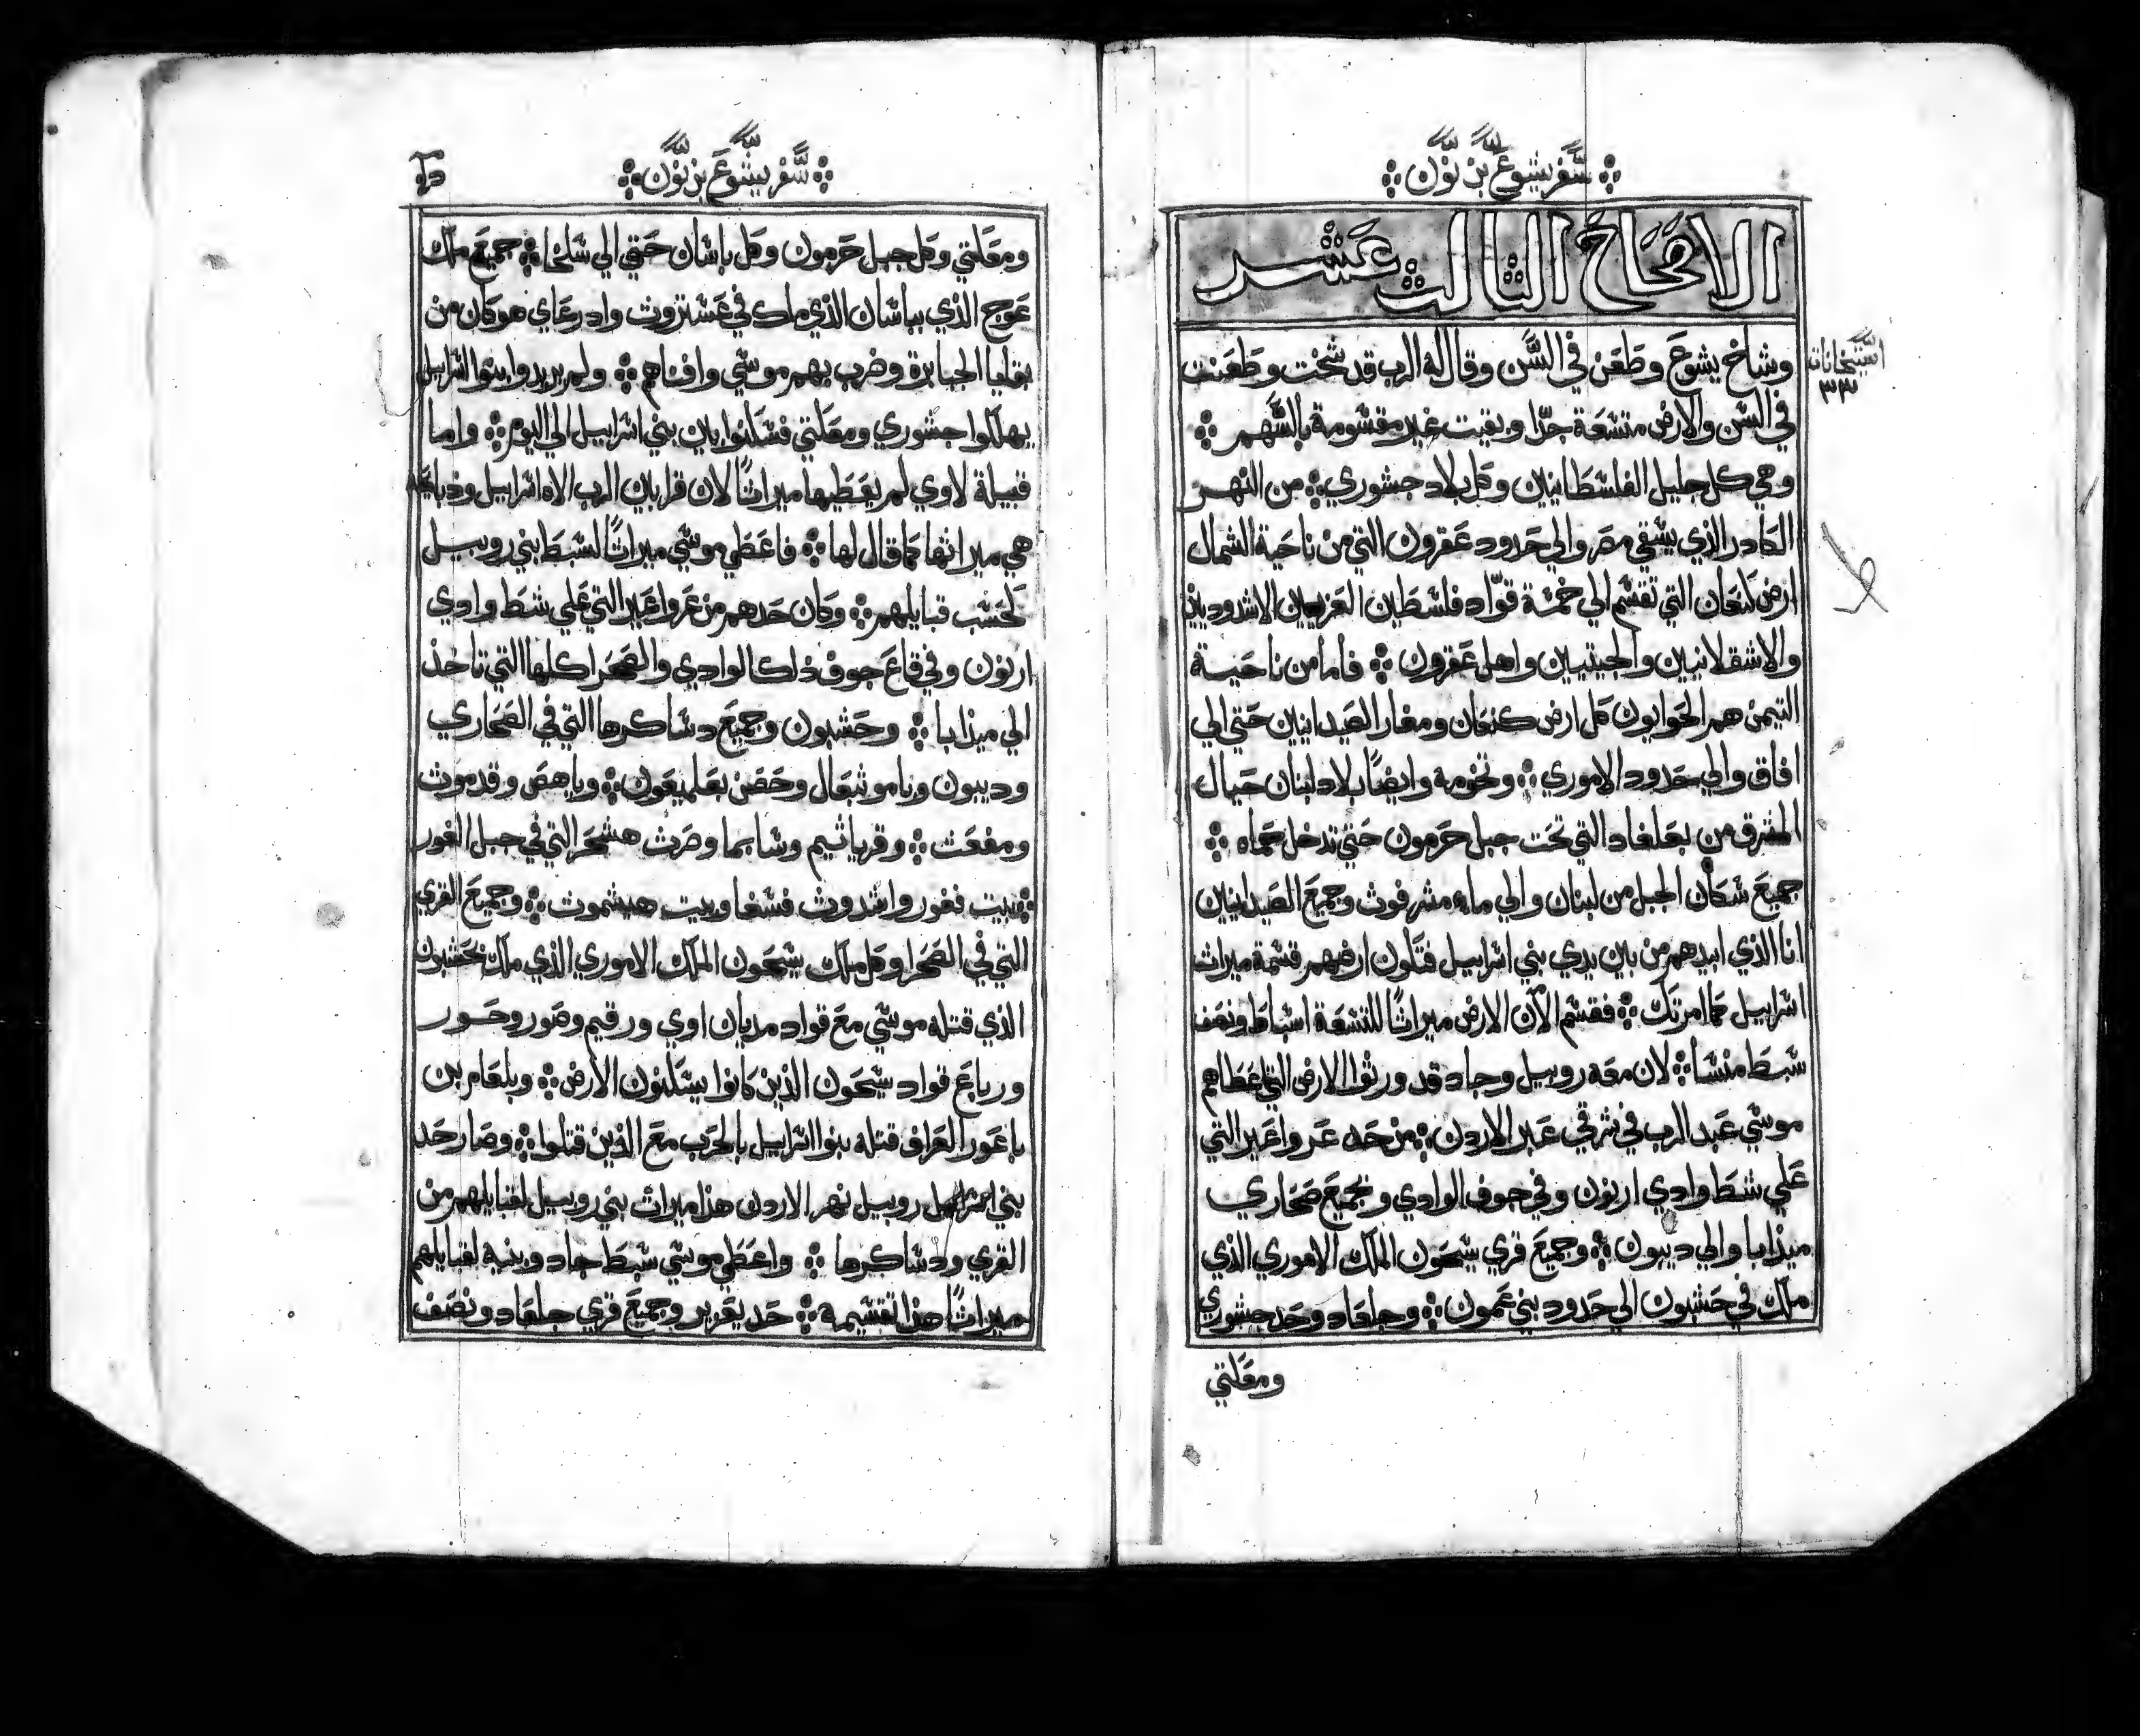 سفر يشوع بن نون
الافتاح الثالث عشر
وشاخ يشوع وطعن في السن وقال له الرب قد شخت وطعنت
في السن والارض متسعة جدّا وبقيت غير مقسومة بالسهم
وهي كل جليل الفلسطانيين وكل بلاد جشوري من النهر
الكادر الذي يسقي مصر والي حدود عقرون التي من ناحية الشمال
ارض كنعان التي تقسم الي خمسة قوّاد فلسطين العزيين الاشدوديين
والاشقلانيين والجيتيين واهل عقرون فاما من ناحية
التيمن هم الحوايون كل ارض كنعان ومغار الصيدانيين حتي الي
افاق والي حدود الاموري وتخومه وايضًا بلاد لبنان حيال
المشرق من بعلغاد التي تحت جبل حرمون حتي تدخل حماه
جميع سكان الجبل من لبنان والي ماه مشرفوث وجميع الصيدانيين
انا الذي ابيدهم من بين يدي بني اسراييل فتكون ارضهم قسمة ميراث
اسراييل كما امرتك فقسم الآن الارض ميراثًا للتسعة اسباط ونصف
سبط منسا لان معه روبيل وجاد قد ورثوا الارض التي اعطاهم
موسي عبد الرب في شرقي عبر الاردن من حد عرواعير التي
علي شط وادي ارنون وفي جوف الوادي وجميع صحاري
ميذابا والي ديبون وجميع قري سيحون الملك الاموري الذي
ملك في حشبون الي حدود بني عمون وجلعاد وحد جشوري
ومعكتي
استيخانات
٣٣
سفر يشوع بن نون
ومعكتي وكل جبل حرمون وكل باشان حتي الي شلخا جميع ملك
عوج الذي بباشان الذي ملك في عشتروث وادرعاي هو كان من
بقايا الجبابرة وضرب بهم موسي وافناهم ولم يريدوا بنوا اسراييل
يهلكوا جشوري ومعكتي فسكنوا بين بني اسراييل الي اليوم واما
قبيلة لاوي لم يعطيها ميراثًا لان قرابين الرب الاه اسراييل وذبايحه
هي ميراثها كما قال لها فاعطي موسي ميراثًا لسبط بني روبيل
كحسب قبايلهم وكان حدهم من عرواعير التي علي شط وادي
ارنون وفي قاع جوف ذلك الوادي والصحرا كلها التي تاخذ
الي ميذابا وحشبون وجميع دساكرها التي في الصحاري
وديبون وباموثبعال وحصن بعلميعون وياهص وقدموث
ومفعث وقرياثيم وشابما وصرث هشحر التي في جبل الغور
بيت فغور واشدوث فسغا وبيت هيشموث وجميع القري
التي في الصحرا وكل ملك سيحون الملك الاموري الذي ملك بحشبون
الذي قتله موسي مع قواد مديان اوي ورقيم وصور وحور
ورباع قواد سيحون الذين كانوا يسكنون الارض وبلعام بن
باعور العراف قتله بنوا اسراييل بالحرب مع الذين قتلوا وصار حد
بني روبيل نهر الاردن هذا ميراث بني روبيل لقبايلهم من
القري ودساكرها واعطي موسي سبط جاد وبنيه لقبايلهم
ميراثًا هذا تقسيمه حد يعزير وجميع قري جلعاد ونصف